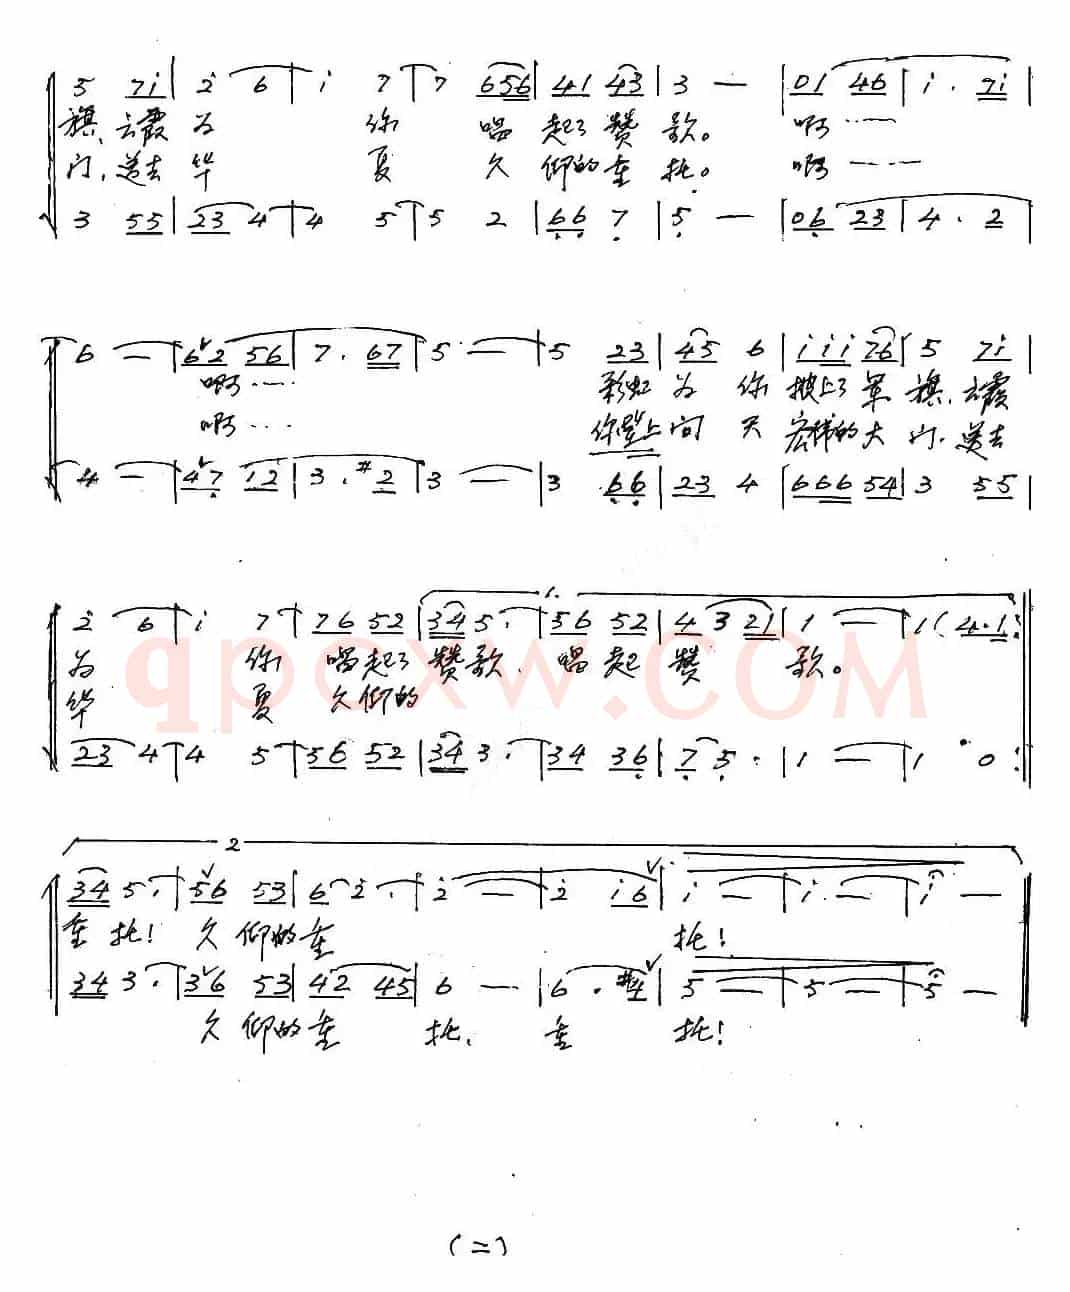 5 7i | 2 6 | i 7 | 7 656 | 41 43 | 3 — | 01 46 | i . 7i |
旗、云霞 为 你 唱 起了 赞 歌。 啊……
门,送去 华 夏 久 仰的 重 托。 啊……
3 55 | 23 4 | 4 5 | 5 2 | 66 7 | 5 — | 06 23 | 4 . 2 |
6 — | 62 56 | 7 . 67 | 5 — | 5 23 | 45 6 | iii 76 | 5 7i |
啊…… 彩虹 为 你 披上了 军 旗、云霞
啊…… 你登上问 天 的大 门,送去
4 — | 47 12 | 3 . #2 | 3 — | 3 66 | 23 4 | 666 54 | 3 55 |
1.
2 6 | i 7 | 76 52 | 34 5 . | 56 52 | 4 3 21 | 1 — | 1 ( 4.1 :
为 你 唱起了 赞歌、 唱 起 赞 歌。
华 夏 久仰的
qpcxw.COM
23 4 | 4 5 | 56 52 | 34 3 . | 34 36 | 7 5 . | 1 — | 1 0 :
2
34 5 . | 56 53 | 6 2 . | 2 — | 2 i6 | i — | i — | i —
重 托! 久 仰的 重 托!
34 3 . | 36 53 | 42 45 | 6 — | 6 . #4 | 5 — | 5 — | 5 —
久 仰的 重 托、 重 托!
(二)